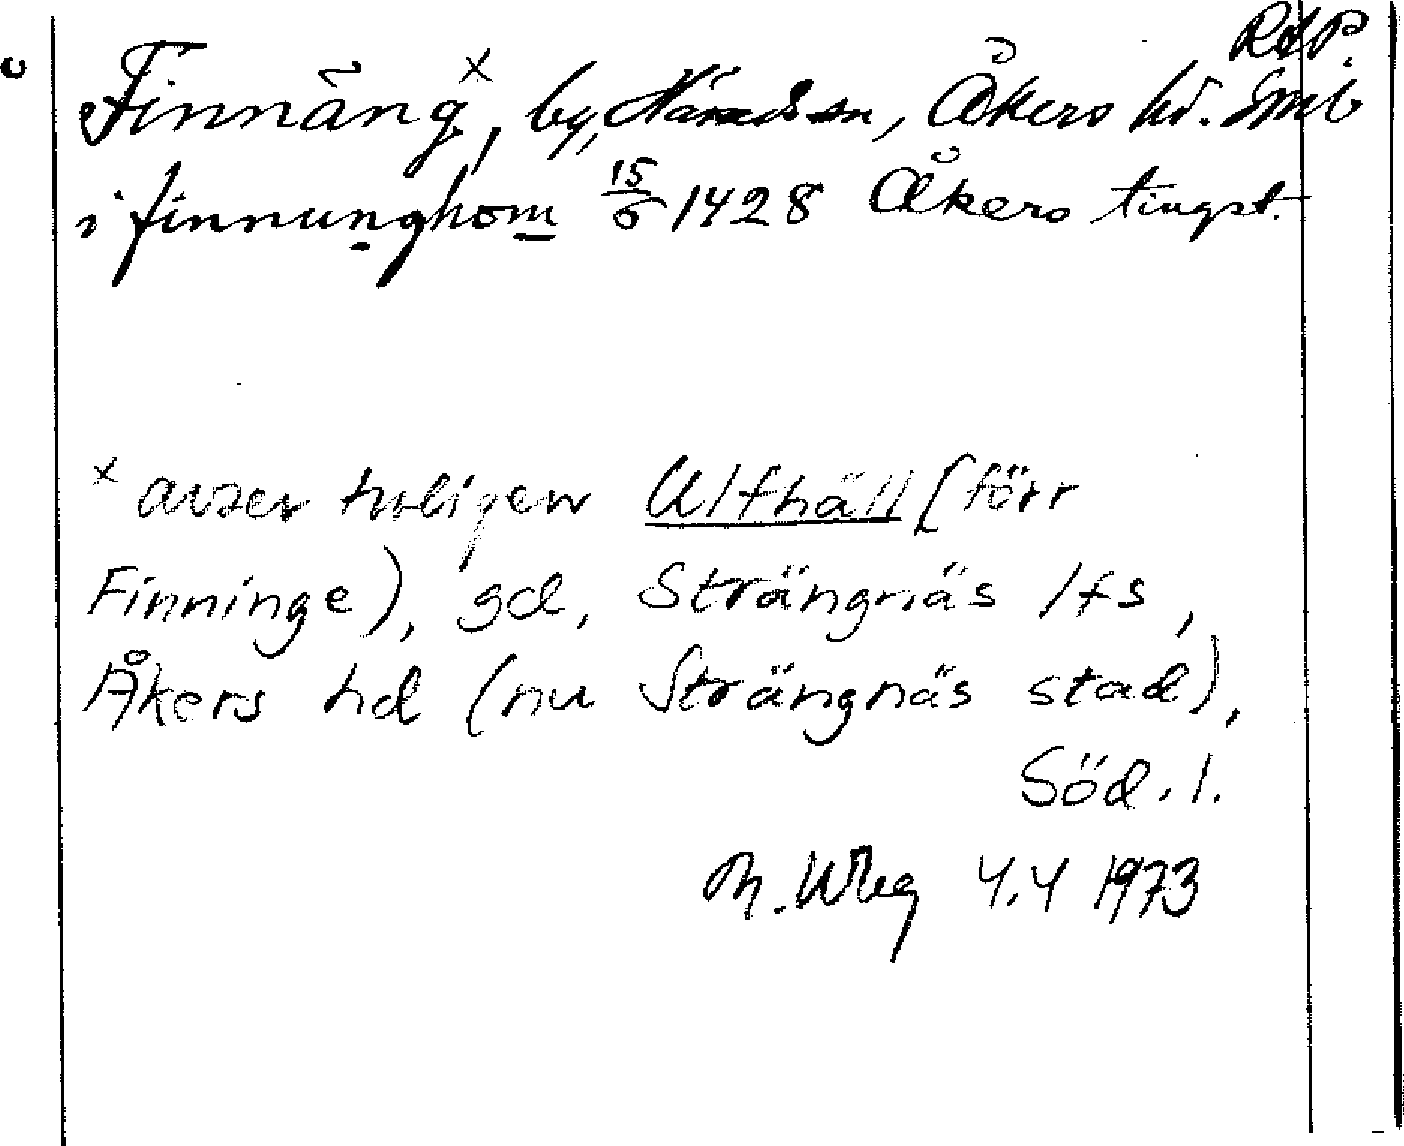 RAP.
Finnäng x, by, Härads sn, Åkers hd. Sml
i finnunghom 15/6 1428 Åkers tingst.
x avser troligen Ulfhäll [förr
Finninge), gd, Strängnäs lfs,
Åkers hd (nu Strängnäs stad),
Söd. l.
Th. Wbg 4.4 1973